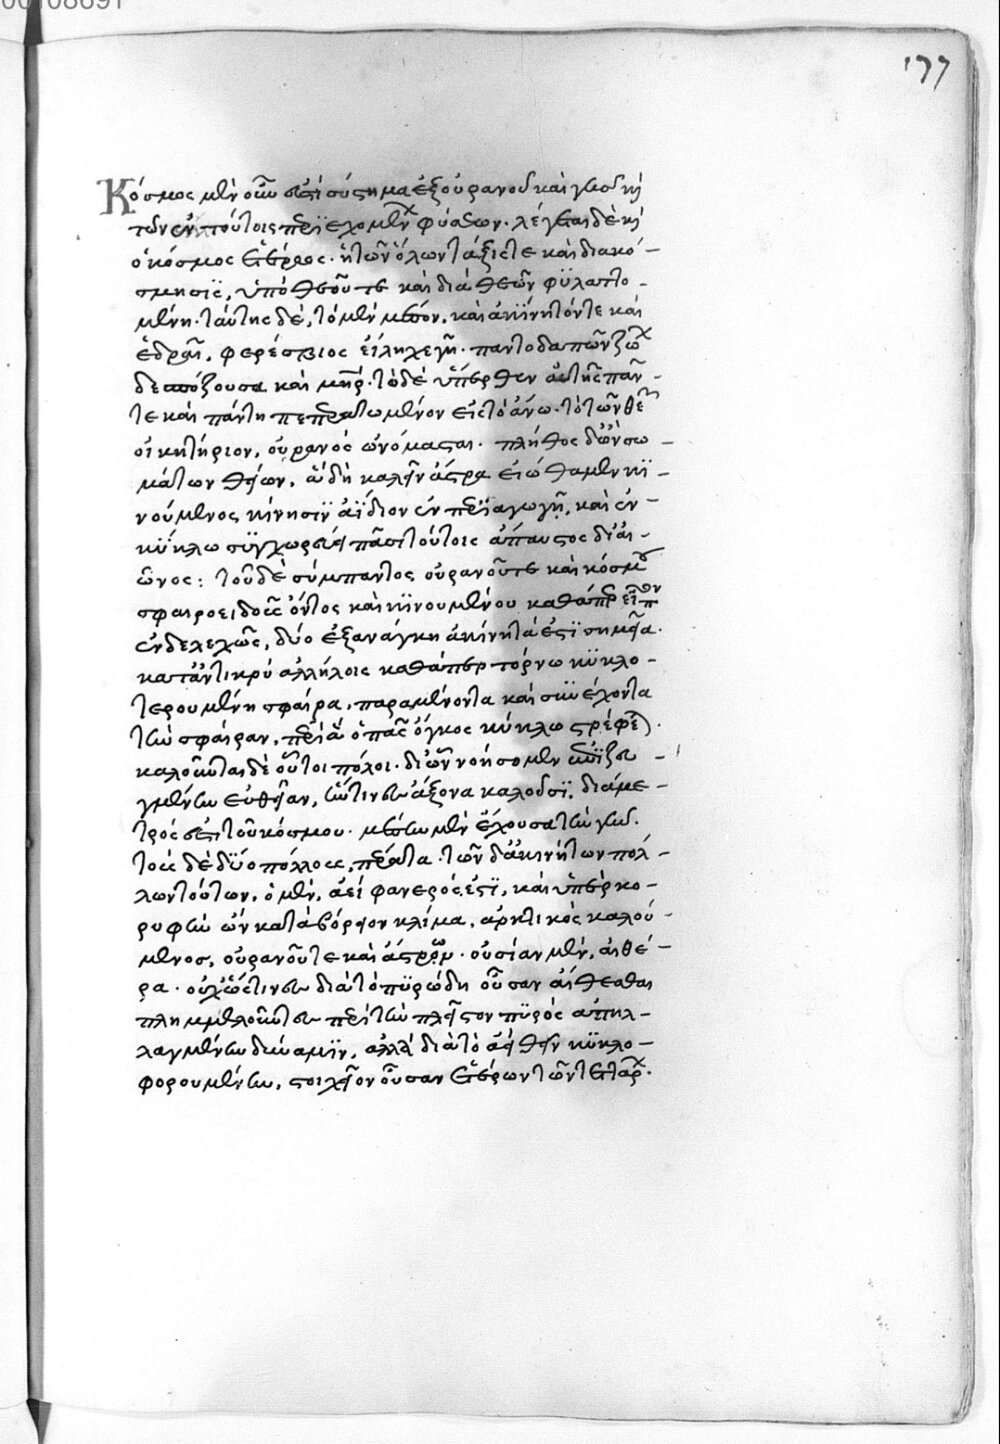 177
Κόσμος μὲν οὖν ἐστὶ σύστημα ἐξ οὐρανοῦ καὶ γῆς καὶ
τῶν ἐν τούτοις περιεχομένων φύσεων. λέγεται δὲ καὶ
ὁ κόσμος ἑτέρως. ἡ τῶν ὅλων τάξις τε καὶ διακό-
σμησις, ὑπὸ θεοῦ τε καὶ διὰ θεῶν φυλαττο-
μένη. ταύτης δὲ, τὸ μὲν μέσον, καὶ ἀκίνητόν τε καὶ
ἑδραῖον, φερέσβιος εἴληχε γῆ. παντοδαπῶν ζώων
καὶ μήτηρ. τὸ δὲ ὕπερθεν αὐτῆς πᾶν
τε καὶ πάντη πεπερατωμένον εἰς τὸ ἄνω. τὸ τῶν θεῶν
οἰκητήριον, οὐρανὸς ὠνόμασται. πλῆθος δ' ὢν σω-
μάτων θείων, ἃ δὴ καλεῖν ἄστρα εἰώθαμεν κι-
νούμενος κίνησιν ἀΐδιον ἐν περιαγωγῇ, καὶ ἐν
κύκλω συγχωρεῖ πᾶσι τούτοις ἀπαύστος δι' αἰ-
ῶνος: τοῦ δὲ σύμπαντος οὐρανοῦ τε καὶ κόσμου
σφαιροειδοῦς ὄντος καὶ κινουμένου καθάπερ εἶπον
ἐνδελεχῶς, δύο ἐξανάγκη ἀκίνητά ἐστι σημεῖα.
καταντικρὺ ἀλλήλοις καθάπερ τόρνω κυκλο-
τερουμένη σφαίρα, παραμένοντα καὶ συνέχοντα
τὴν σφαῖραν, περὶ ἃ ὁ πᾶς ὄγκος κύκλω στρέφεται.
καλοῦνται δὲ οὗτοι πόλοι. δι' ὧν νοήσομεν ἐπιζευ-
γμένην εὐθεῖαν, ἥντινα ἄξονα καλοῦσι, διάμε-
τρός ἐστι τοῦ κόσμου. μέσην μὲν ἔχουσα τὴν γῆν.
τοὺς δὲ δύο πόλλους, πέρατα. τῶν δ' ἀκινήτων πόλ-
λων τούτων, ὁ μὲν, ἀεὶ φανερός ἐστι, καὶ ὑπὲρ κο-
ρυφὴν ὢν κατὰ βόρειον κλίμα, ἀρκτικὸς καλού-
μενος, οὐρανοῦ τε καὶ ἄστρων. οὐσίαν μὲν, αἰθέ-
ρα. οὐχ ὥς τινες διὰ τὸ πυρώδη οὖσαν αἴθεσθαι
πλημμελοῦντες περὶ τὴν πλεῖστον πυρὸς ἀπηλ-
λαγμένην δύναμιν, ἀλλὰ διὰ τὸ ἀεὶ θεῖν κυκλο-
φορουμένην, στοιχεῖον οὖσαν ἕτερον τῶν τεττάρων.